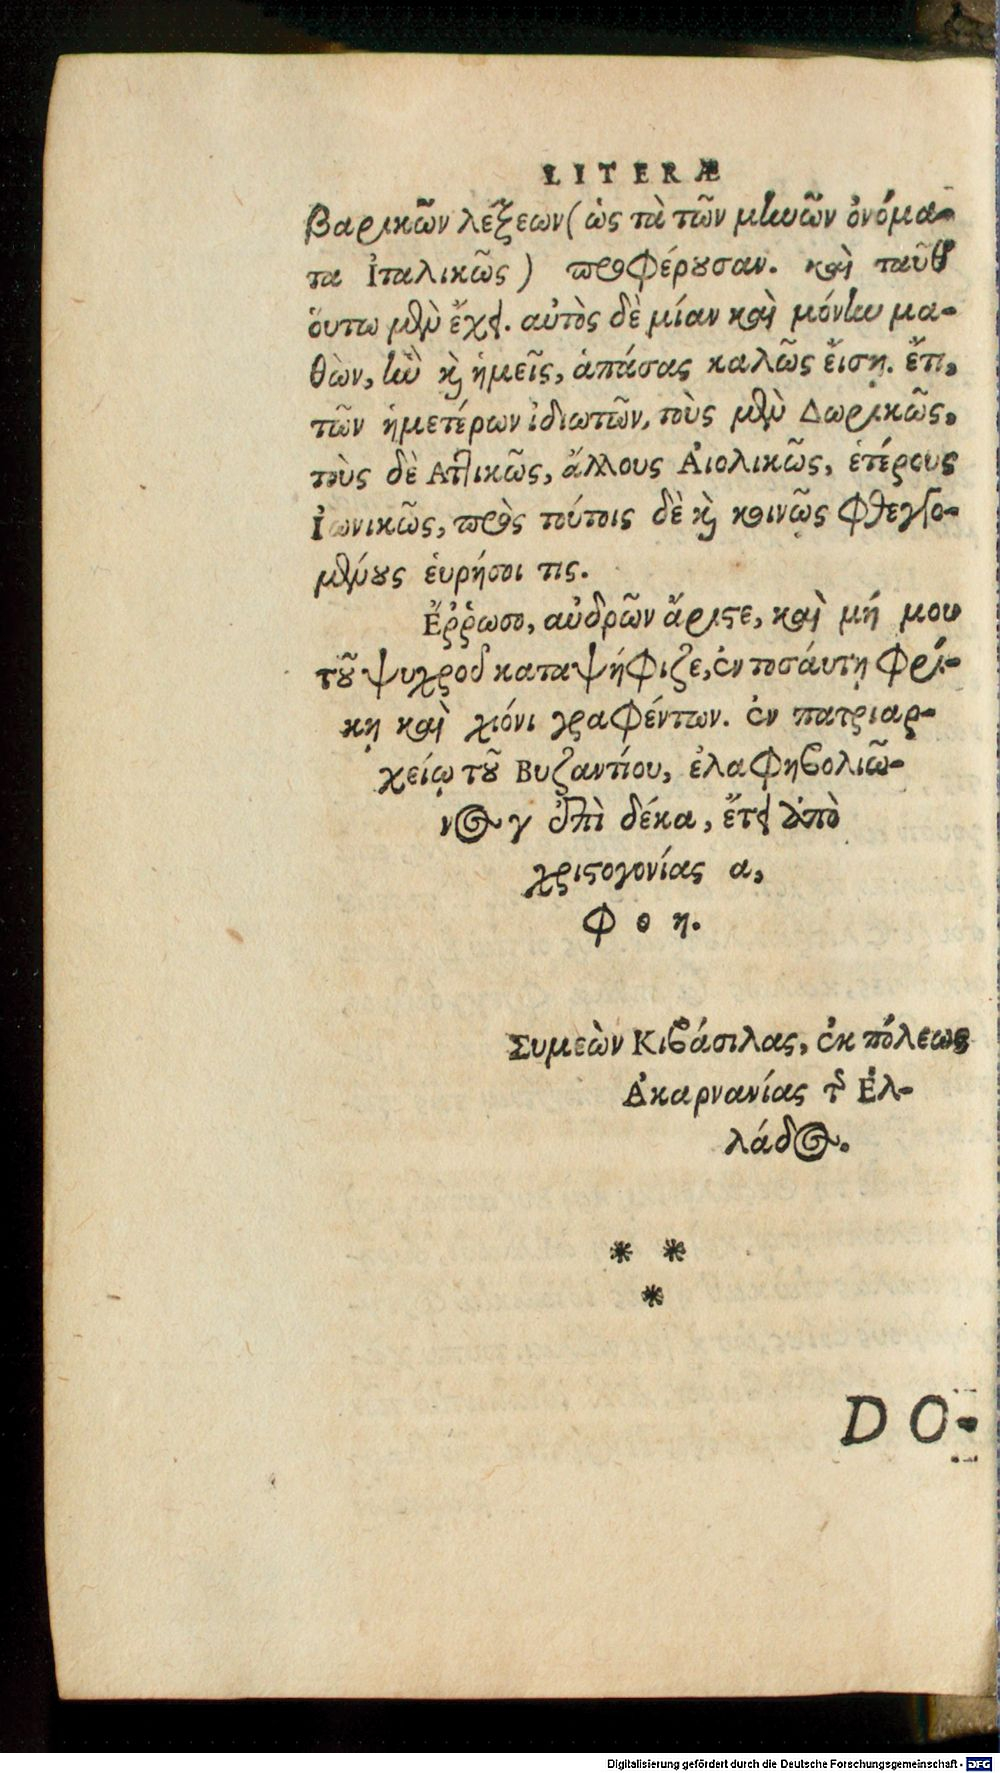 LITERÆ
βαρικῶν λέξεων (ὡς τὰ τῶν μηνῶν ὀνόμα-
τα Ἰταλικῶς) προφέρουσαν. καὶ ταῦθ'
ὅυτω μὲν ἔχει. αὐτὸς δὲ μίαν καὶ μόνην μα-
θὼν, ἣν καὶ ἡμεῖς, ἁπάσας καλῶς ἔιση. ἔτι,
τῶν ἡμετέρων ἰδιωτῶν, τοὺς μὲν Δωρικῶς,
τοὺς δὲ Ἀττικῶς, ἄλλους Ἀιολικῶς, ἑτέρους
Ἰωνικῶς, πρὸς τούτοις δὲ καὶ κοινῶς φθεγγο-
μένους ἑυρήσοι τις.
Ἔῤῥωσο, ἀνδρῶν ἄριστε, καὶ μή μου
τοῦ ψυχροῦ καταψήφιζε, ἐν τοσάυτῃ φρί-
κῃ καὶ χιόνι γραφέντων. ἐν πατριαρ-
χείῳ τοῦ Βυζαντίου, ἐλαφηβολιῶ-
νος γ ἐπὶ δέκα, ἔτει ἀπὸ
χριστογονίας α,
φ ο η.
Συμεὼν Κιβάσιλας, ἐκ πόλεως
Ἀκαρνανίας τῆς Ἑλ-
λάδος.
* *
*
DO-
Digitalisierung gefördert durch die Deutsche Forschungsgemeinschaft - DFG